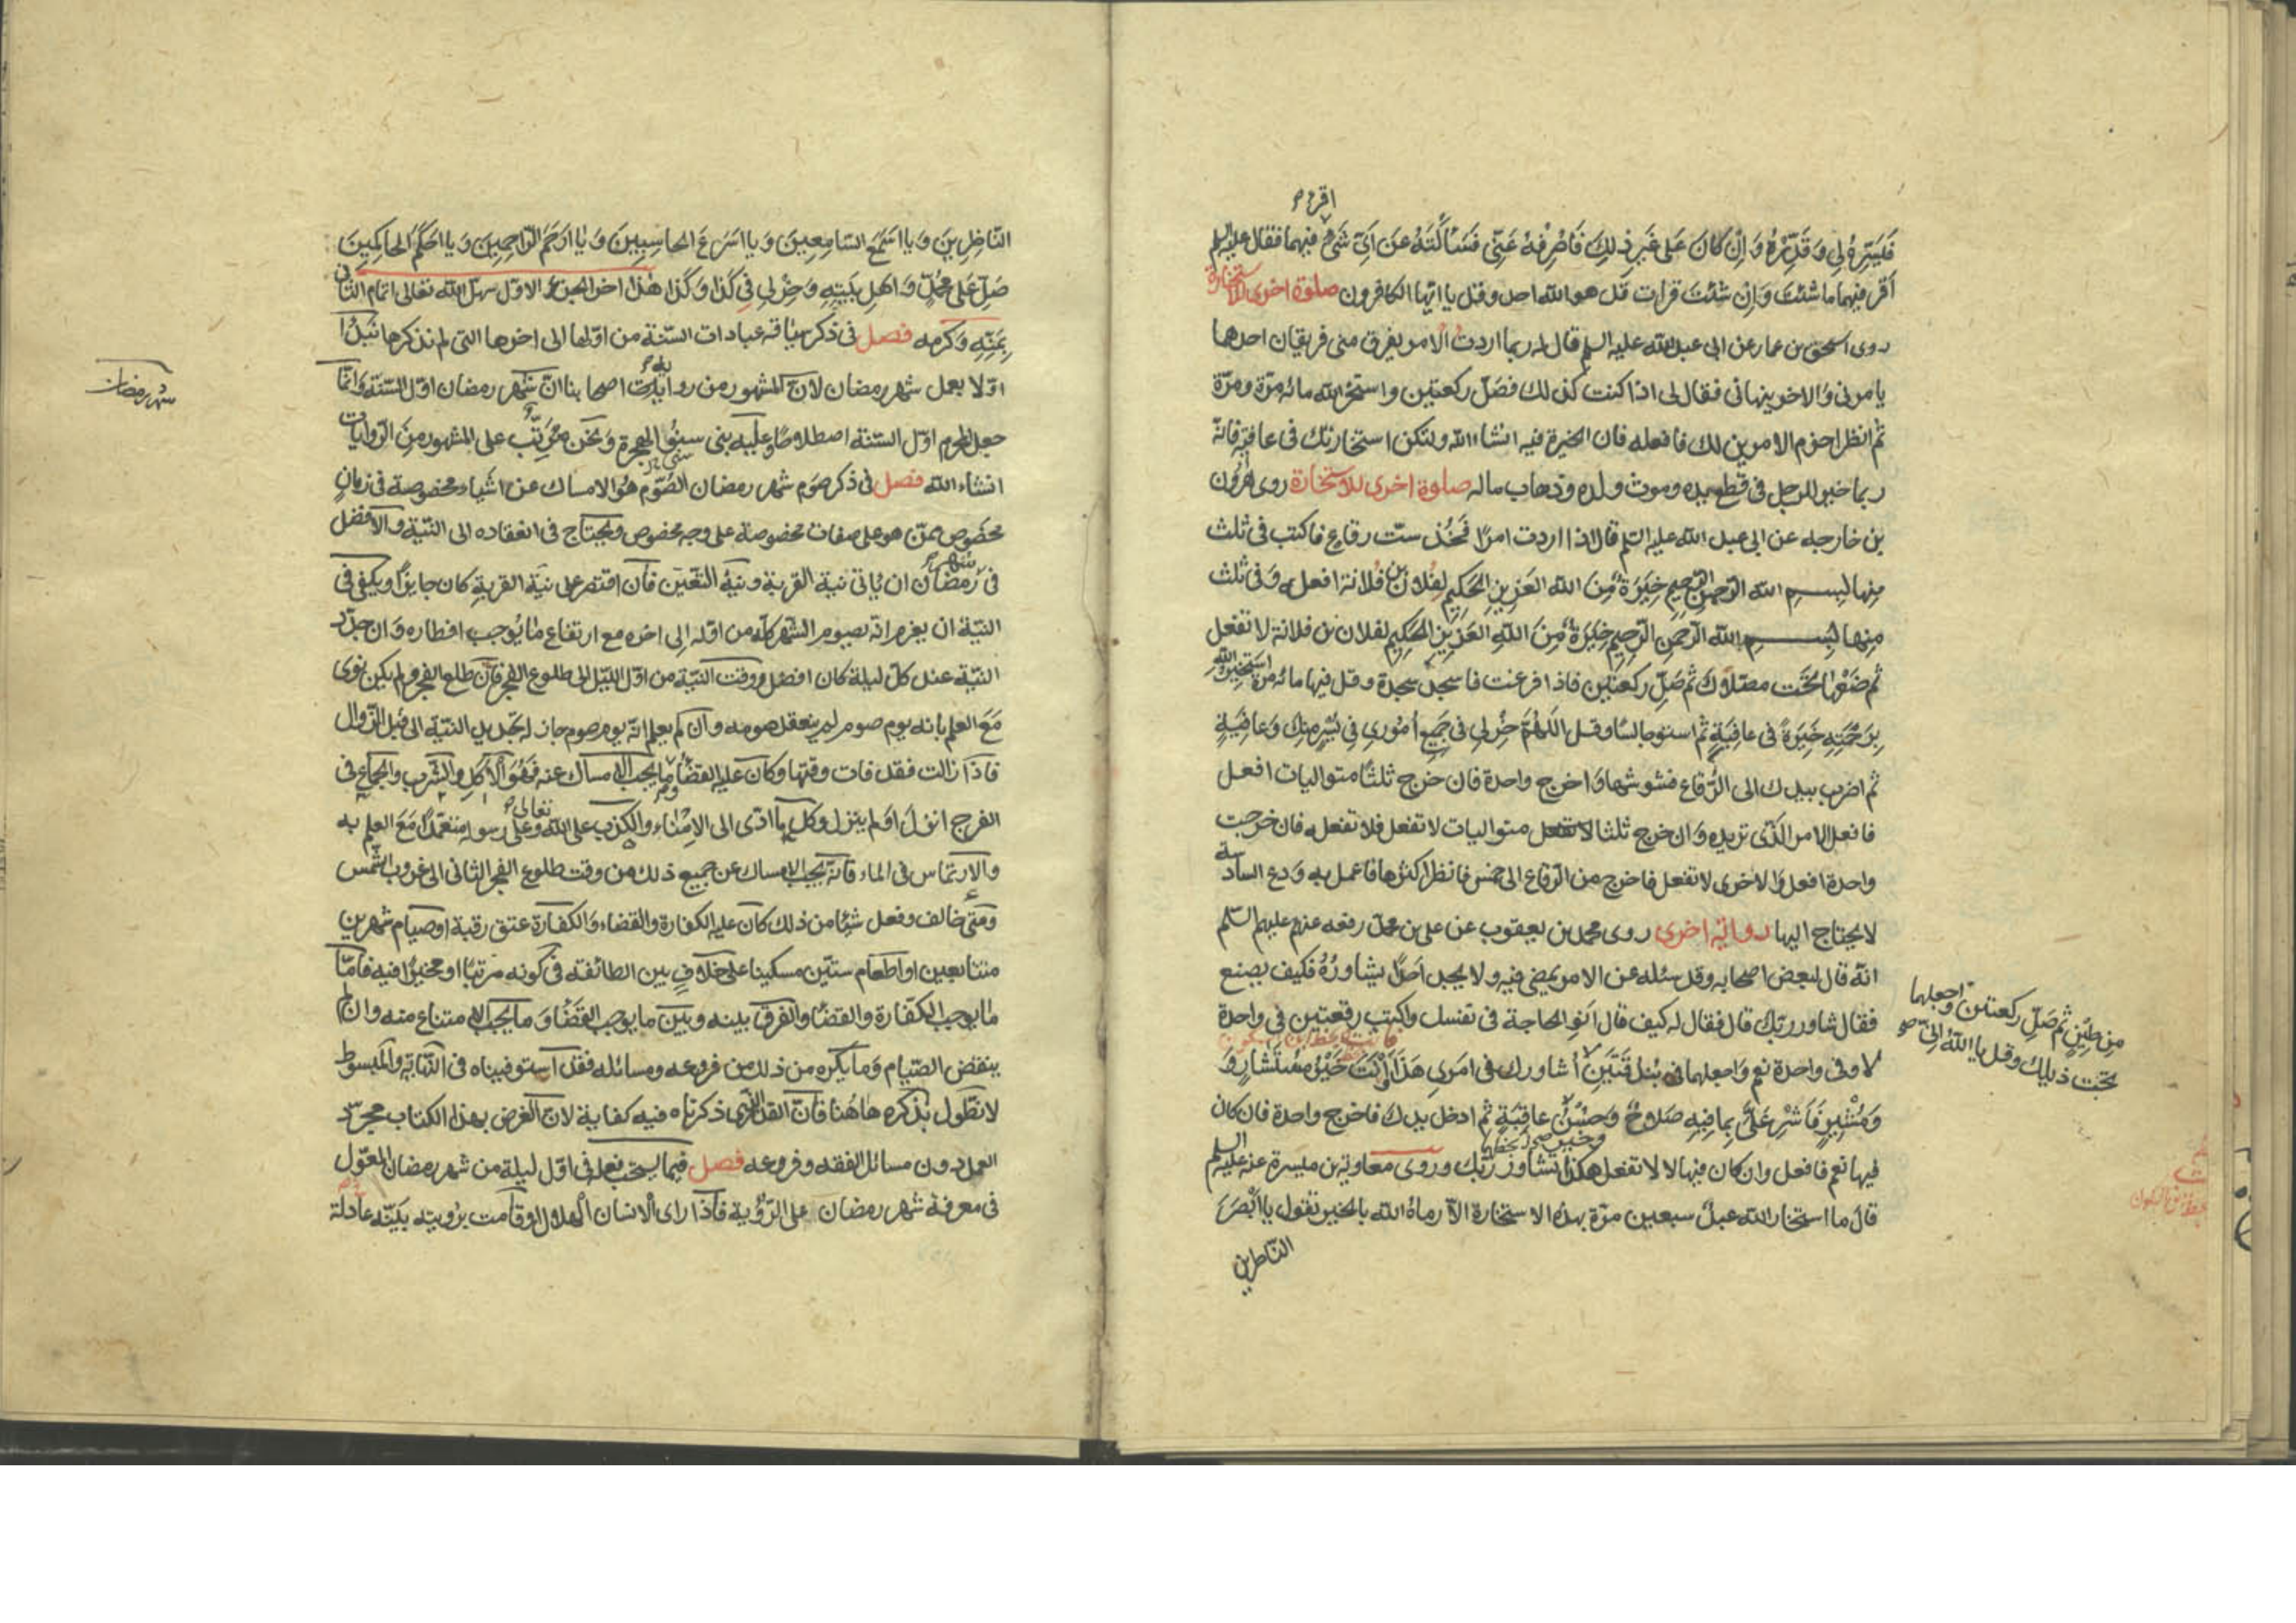 اقرء
فَيَسِّرْهُ لِي وَقَدِّرْهُ وَاِنْ كَانَ عَلَى غَيرِ ذٰلِكَ فَاصْرِفْهُ عَنّي فسَاَلْتُهُ عَنْ اَيّ شَئ فيهما فقال عليه السلم
أقرء فيهما ما شئت وَاِنْ شئتَ قرات قل هو الله احد وقل يا ايّها الكافرون صلوة اخرى للاستخارة
روى اسحق بن عمار عن ابى عبد الله عليه السلم قال قال له ربما اردت الامر يفرق منى فريقان احدهما
يامرنى والاخر ينهانى فقال لى اذا كنت كذلك فصَلّ ركعتين واستخر الله مائة مرّة ومرّة
ثم انظر احزم الامرين لك فافعله فان الخيرة فيه انشاء الله ولتكن استخارتك فى عافية فانّه
ربما خير للرجل فى قطع يده وموت ولده وذهاب ماله صلوة اخرى للاستخارة روى هٰرون
بن خارجه عن ابى عبد الله عليه السّلم قال اذا اردت امرًا فَخُذ ستّ رقاع فاكتب فى ثلث
مِنها بِسـم الله الرّحمن الرّحيم خِيَرَةٌ مِنَ الله العَزيزِ الحَكيمِ لِفُلان بن فُلانة افعل وَفى ثلث
مِنها بِسـم الله الرّحمنِ الرّحيمِ خِيَرَةٌ مِنَ اللهِ العَزيزِ الحَكيمِ لفلان بن فلانة لا تفعل
ثم ضَعْها تحَت مصَلّاك ثم صَلّ ركعتين فاذا فرغت فاسجد سجدة وقل فيها مائة مرّة اَستَخيرُ اللهَ
بِرَحْمَتِهِ خِيَرَةً فى عافِيَةٍ ثم استو جالسًا وقل اَللّهُمَّ خِرْ لي فى جَميعِ اُمُوري فِي يُسْرٍ مِنكَ وَعافِيَةٍ
ثم اضرب بيدك الى الرّقاع فشوشها وَاخرج واحدة فان خرج ثلثًا متواليات افعل
فافعل الامر الّذى تريده وَان خرج ثلثا لا تفعل متواليات لا تفعل فلا تفعله فان خرجت
واحدة افعل وَالاخرى لا تفعل فاخرج من الرّقاع الى خمس فانظر اكثرها فاعمل به وَدع السادسة
لا يحتاج اليها رواية اخرى روى محمد بن يعقوب عن على بن محمّد رفعه عنهم عليهم السّلم
انّه قال لبعض اصحابه وقد سئله عن الامر يمضى فيه ولا يجد أحدًا يشاورُهُ فكيف يصنع
فقال شاور ربّك قال فقال له كيف قال اَنوِ الحاجة فى نفسك واكتب رقعتين فى واحدة
لا وفى واحدة نعم وَاجعلهما فى بُندقَتَين اُشاورك فى امري هَذا وَاَنْتَ خَيْرُ مُسْتَشارٍ وَ
وَمُشْيرٍ فَأَشرْ عَلَيَّ بِما فيهِ صَلاحٌ وَحُسْنُ عاقِبَةٍ ثم ادخل يدك فاخرج واحدة فان كان
فيها نعم فافعل وان كان فيها لا لا تفعل هكذا تشاور ربّك وروى معاوية بن ميسرة عنه عليه السلم
قال ما استخار الله عبدٌ سبعين مرّة بهذه الاستخارة الاّ رماهُ الله بالخير تقول يا اَبْصَرَ
الناظرين
مِن طِيْنٍ ثم صَلّ ركعتين وَاجعلهما
تحَت ذيلك وقل يا اَللهُ اِنّى
النّاظِرينَ وَيا اَسْمَعَ السّامِعينَ وَيا اَسرَعَ الحاسِبينَ وَيا اَرْحَمَ الرّاحِمينَ وَيا اَحكَمَ الحاكِمينَ
صَلِّ عَلى مُحمّدٍ وَاهلِ بَيتِهِ وَخِرْ لي فِي كَذا وَكَذا هٰذا اخر الجزء الاوّل سهّل الله تعالى اتمام الثانى
بِمَنّه وَكرمه فصل فى ذكر سياقه عبادات السّنة من اوّلها الى اخرها التى لم نذكرها نَبدُأ
اوّلا بعمل شهر رمضان لانّ المشهور من روايات اصحابنا انّ شهر رمضان اوّل السّنة وَانّما
جعل المحرم اوّل السّنة اصطلاحًا وعليه بنى سنوُ الهجرة وَنحن مُرَتّب على المشهور مِنَ الرّوايات
انشاء الله فصل فى ذكر صوم شهر رمضان الصّوم هُوَ الامساك عن اشياء مخصوصة فى زمانٍ
مخصوص ممّن هو على صفات مخصوصة على وجه مخصوص ويحتاج فى انعقاده الى النّيّة والافضل
فى رَمضان ان يُاتى نيّة القربة ونيّة التّعيين فان اقتصر على نيّة القربة كان جايزًا ويكفى فى
النيّة ان يعزم انّه يصوم الشّهر كلّه من اوّله الى اخره مع ارتفاع ما يُوجب افطاره وَان جدّد
النيّة عند كلّ ليلة كان افضل ووقت النيّة من اوّل اللّيل الى طلوع الفجر فان طلع الفجر ولم يكن نوى
مَعَ العلم بانه يوم صوم لم ينعقد صومه وان لم يعلم انّه يوم صوم جاز له تجديد النيّة الى قبل الزّوال
فاذا زالت فقد فات وقتها وكان عليه القضاء وما يجب الامساك عنه فهُوَ الاَكل والشّرب والجماع فى
الفرج انزل اَو لم ينزل وكل ما ادّى الى الاِمْناء والكذب على الله وعلى رسوله متعمّدًا مَعَ العلم به
والارتماس فى الماء فانّه يجب الامساك عن جميع ذلك من وقت طلوع الفجر الثانى الى غروب الشّمس
ومتى خالف وفعل شيئا من ذلك كان عليه الكفارة والقضاء وَالكفّارة عتق رقبة او صيام شهرين
متتابعين او اطعام ستّين مسكينا على خلافٍ بين الطائفة فى كونه مرَتبًا او مخيرًا فيه فأمّا
ما يوجب الكفّارة والقضاء والفرق بينه وبين ما يوجب القضَاء وَما يجب الامتناع منه وان لم
ينقض الصّيام وَما يكره من ذلك من فروعه ومسائله فقد استوفيناه فى النّهاية والمبسوط
لا نطّول بذكره هاهُنا فانّ القدر الّذى ذكرناه فيه كفاية لانّ الغرض بهذا الكتاب مجرّد
العمل دون مسائل الفقه وفروعه فصل فيما يستحب فعله فى اوّل ليلة من شهر رمضان المعوّل
فى معرفة شهر رمضان على الرّؤية فاذا راى الانسان الهلال او قامت برؤيته بيّنة عادلة
شهر رمضان